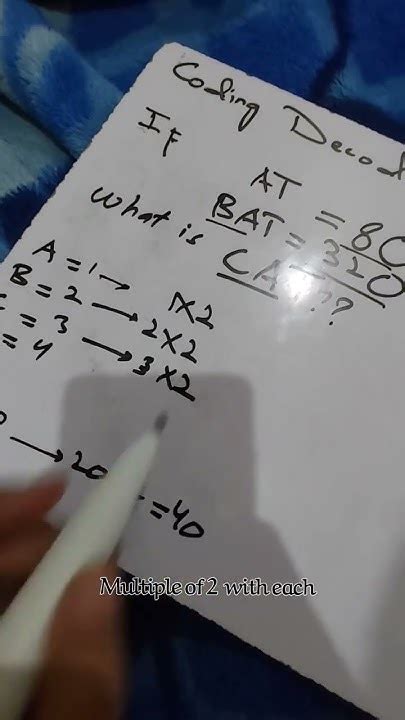 Coding Decod
IF
AT = 80
BAT = 320
What is CA ??
A = 1 → 1×2
B = 2 → 2×2
= 3 → 3×2
= 4
→ 20 = 40
Multiple of 2 with each